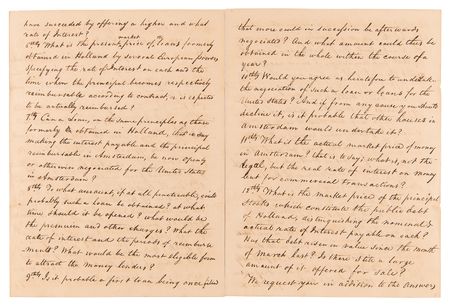 have succeeded by offering a higher and what
rate of Interest?
6th What is the present market price of loans formerly
obtained in Holland by several European powers
specifying the rate of Interest on each and the
time when the principal becomes respectively
reimbursable according to contract, or is expected
to be actually reimbursed?
7th Can a loan, on the same principles as those
formerly obtained in Holland, that is by
making the interest payable and the principal
reimbursable in Amsterdam, be now openly
or otherwise negociated for the United States
in Amsterdam?
8th To what amount, if at all practicable, could
probably such a loan be obtained? at what
time should it be opened? what would be
the premium and other charges? What the
rate of interest and the periods of reimburse
ments? What would be the most eligible form
to attract the money lenders?
9th Is it probable a first loan being once
that more could in succession be afterwards
negociated? And what amount could thus be
obtained in the whole within the course of a
year?
10th Would you agree as heretofore to undertake
the negociation of such a loan or loans for the
United States? And if from any cause you should
decline it, is it probable that other houses in
Amsterdam would undertake it?
11th What is the actual market price of money
in Amsterdam? that is to say; what is, not the
legal, but the real rate of interest on money
lent for commercial transactions?
12th What is the market price of the principal
Stocks which constitute the public debt
of Holland, distinguishing the nominal &
actual rate of Interest payable on each?
Has that debt risen in value since the month
of March last? Is there still a large
amount of it offered for sale?
We request you in addition to the Answers